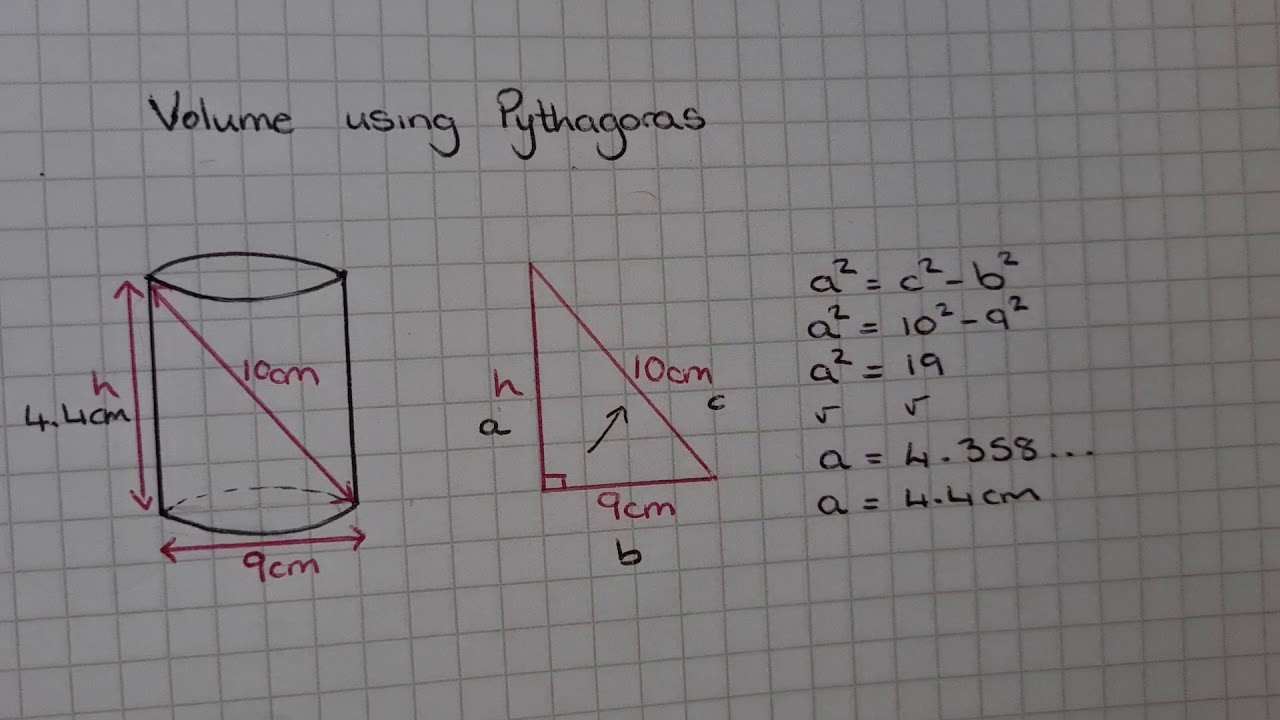 Volume using Pythagoras
h
4.4cm
10cm
9cm
h
a
10cm
c
9cm
b
a² = c² - b²
a² = 10² - 9²
a² = 19
√ √
a = 4.358...
a = 4.4cm